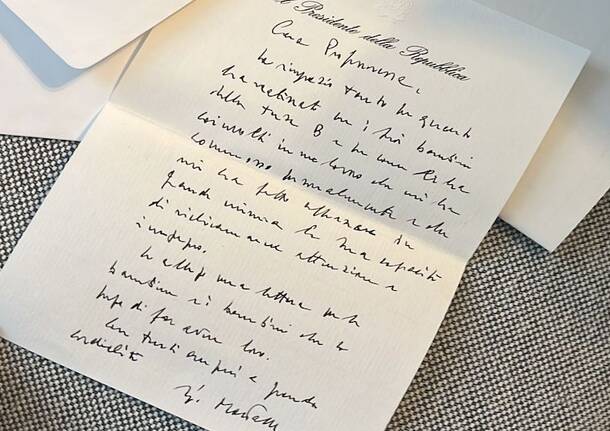 Il Presidente della Repubblica
Cara Professoressa,
La ringrazio tanto per quanto
ha realizzato con i suoi bambini
della terza B e per come li ha
coinvolti in un lavoro che mi ha
commosso personalmente e che
mi ha fatto
grande la sua capacità
di richiamare attenzione e
impegno.
Le allego una lettera per le
bambine e i bambini che la
prego di far avere loro.
Con tanti auguri e grande
cordialità